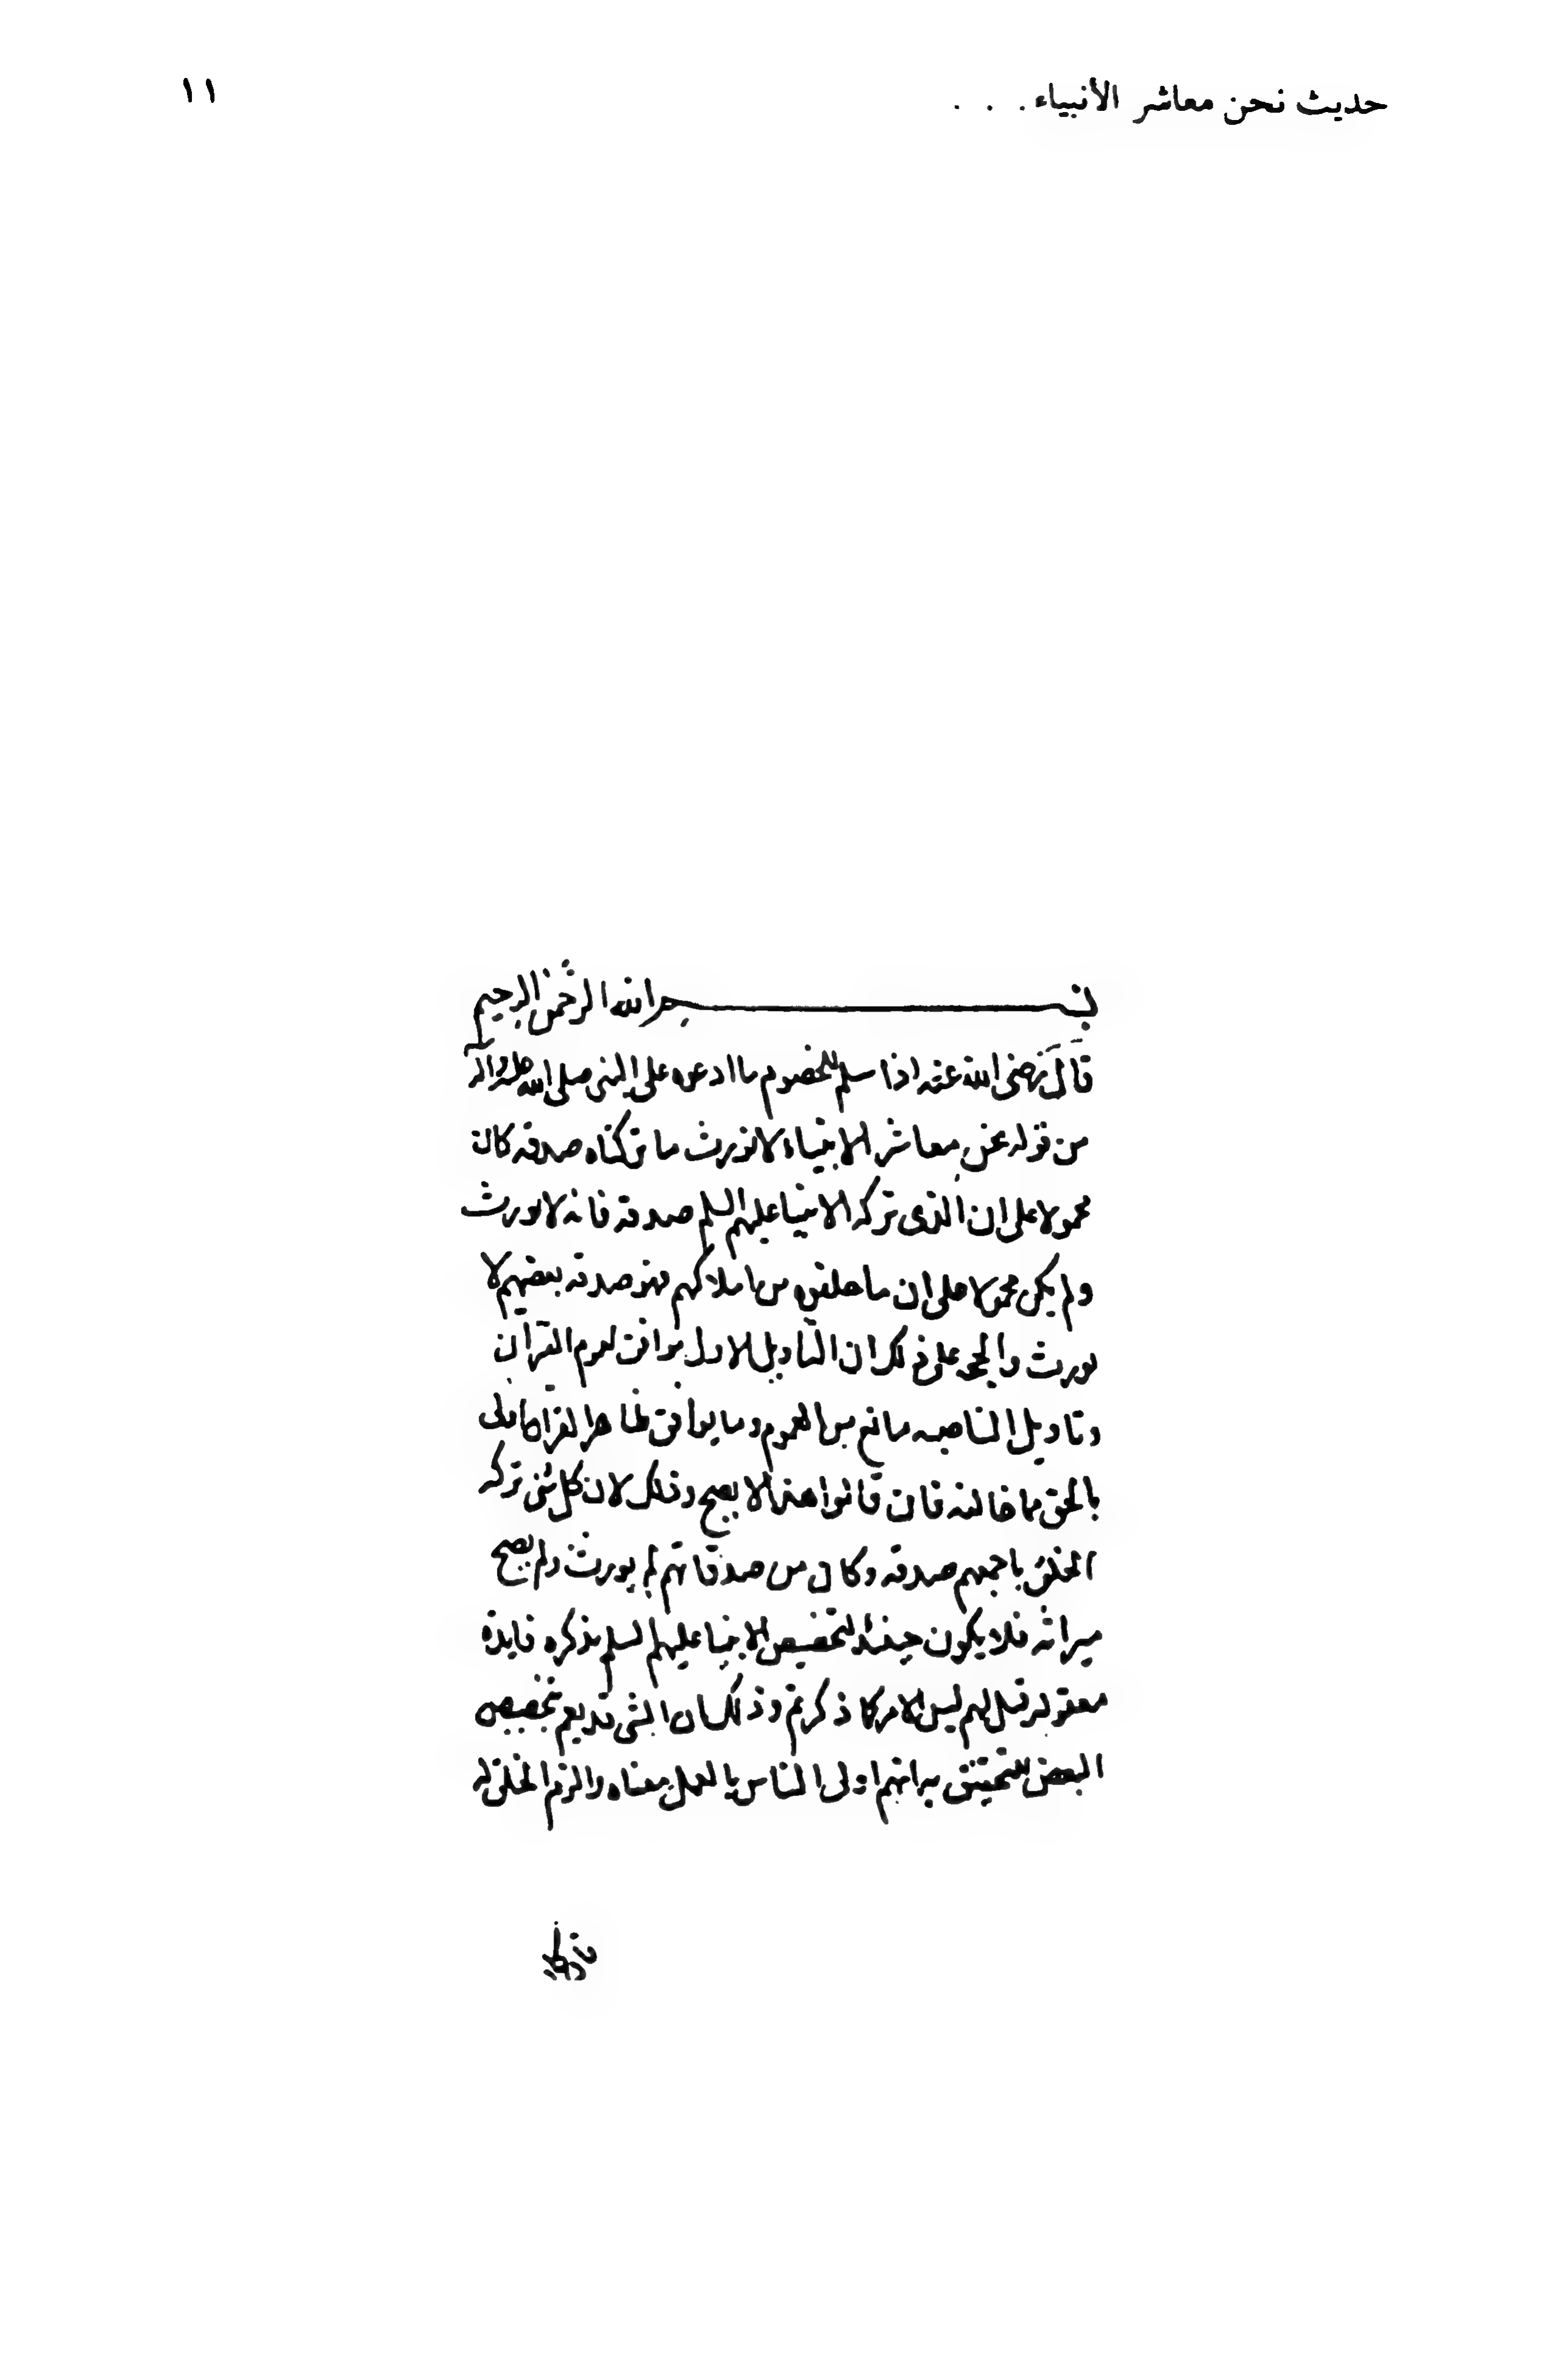 حديث نحن معاشر الأنبياء . . .
١١
بسم الله الرحمن الرحيم
قال رضى الله عنه اذا سلم للخصوم ما ادعوه على النبى صلى الله عليه واله
من قوله نحن معاشر الانبياء لا نورث ما تركناه صدقه كان
محمولا على ان الذى تركه الانبيا عليهم السلم صدقه فانه لا يورث
ولم يكن محمولا على ان ما خلفوه من املاكهم فهو صدقه بعضهم لا
يورث والحجه على ذلك ان التاويل الاول يوافق لعموم القرآن
وتاويل الناصبه مانع من العموم وما يوافق ظاهر القرآن اولى
بالحق مما خالفه فان قالوا هذا لا يصح وذلك لان كل شى تركه
الخلق باجمعهم صدقه وكان من صدقاتهم لم يورث ولم يصح
ميراثه فلا يكون حينئذ لتخصيص الانبيا عليهم السلم بذكره فايدة
معقوله قيل لهم ليس الامر كما ذكرتم وذلك ان الشى قد يعم بتخصيص
البعض للتحقيق بانهم اولى الناس بالعمل بمعناه والزم الخلق له